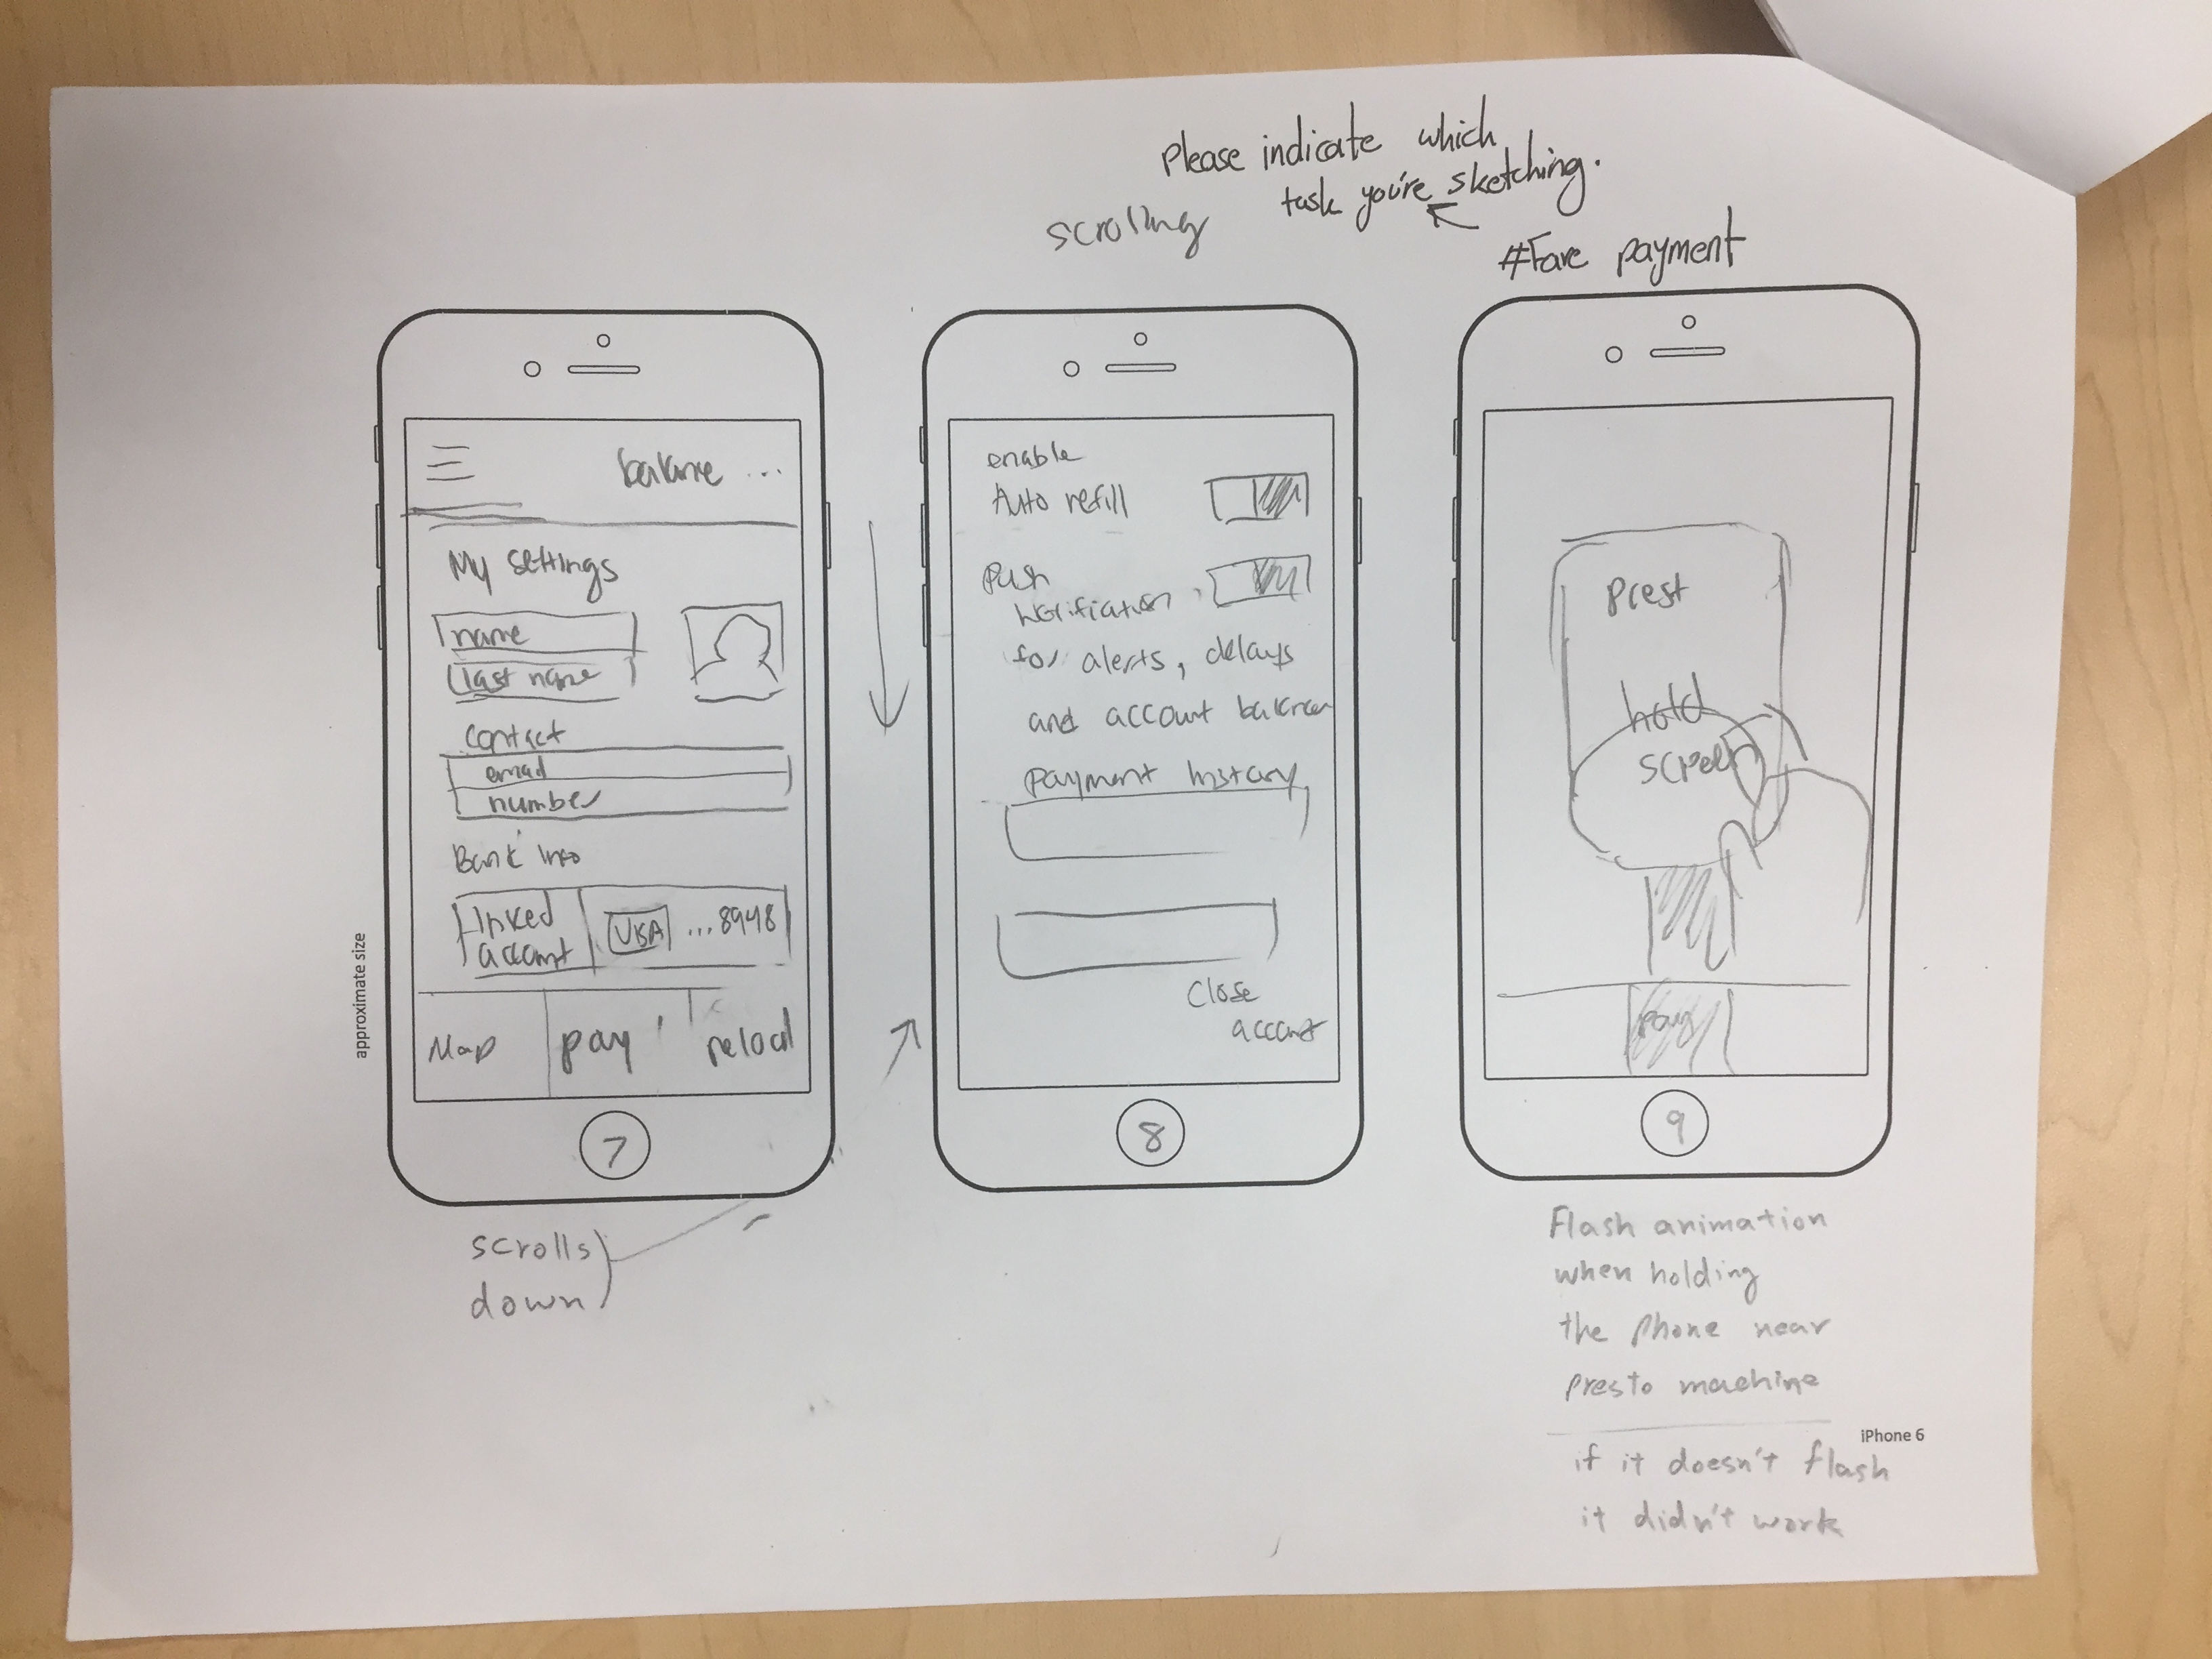 Please indicate which
task you're sketching.
scrolling
#Fare payment
balance ...
My settings
name
last name
contact
email
number
Bank info
linked
account
VISA
...8948
Map
pay
reload
7
scrolls
down
approximate size
enable
Auto refill
Push
Notification
for alerts, delays
and account balance
payment history
Close
account
8
Prest
hold
screen
pay
9
Flash animation
when holding
the phone near
presto machine
iPhone 6
if it doesn't flash
it didn't work